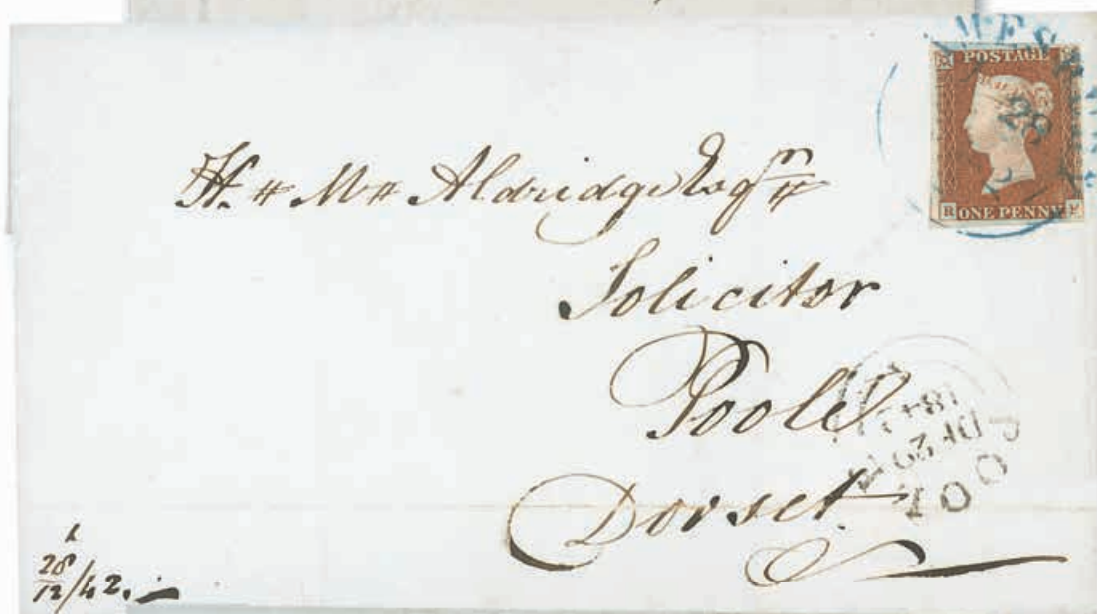 POSTAGE
ONE PENNY
H. M. Aldridge Esqr
Solicitor
Poole
Dorset.
POOLE
DE 29
1842
28/12/42.